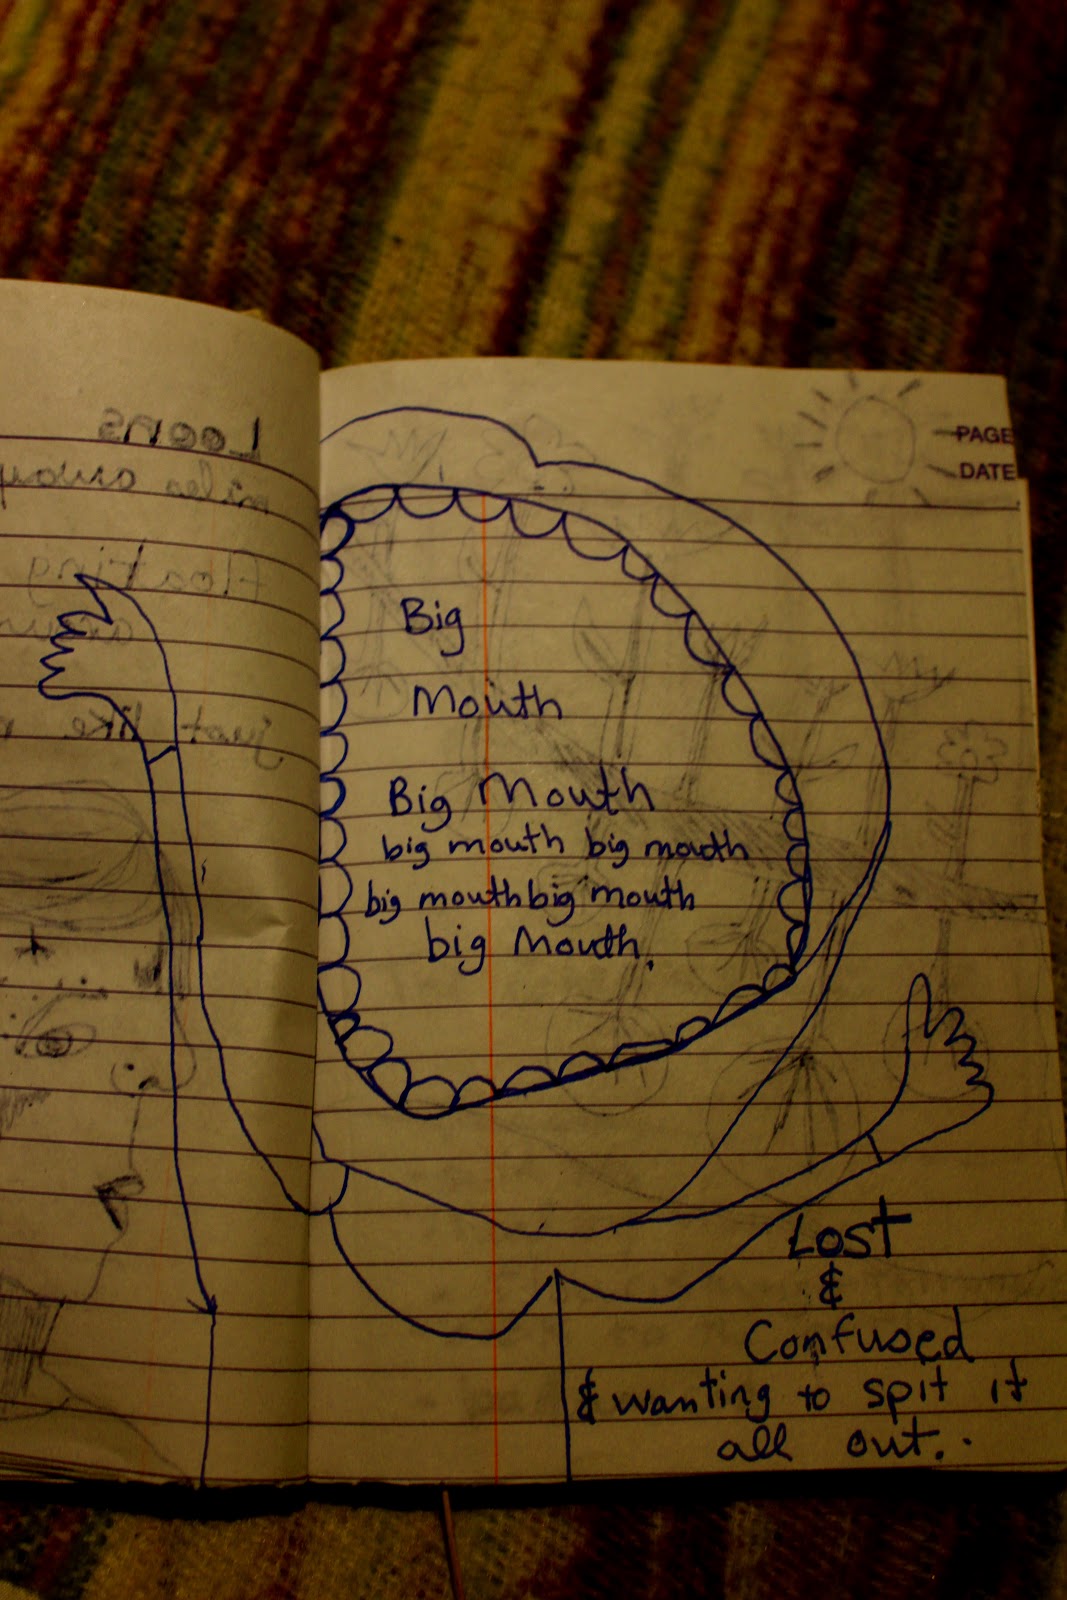 miles away
floating
just like
PAGE
DATE
Big
Mouth
Big Mouth
big mouth big mouth
big mouth big mouth
big Mouth.
Lost
&
Confused
& wanting to spit it
all out..